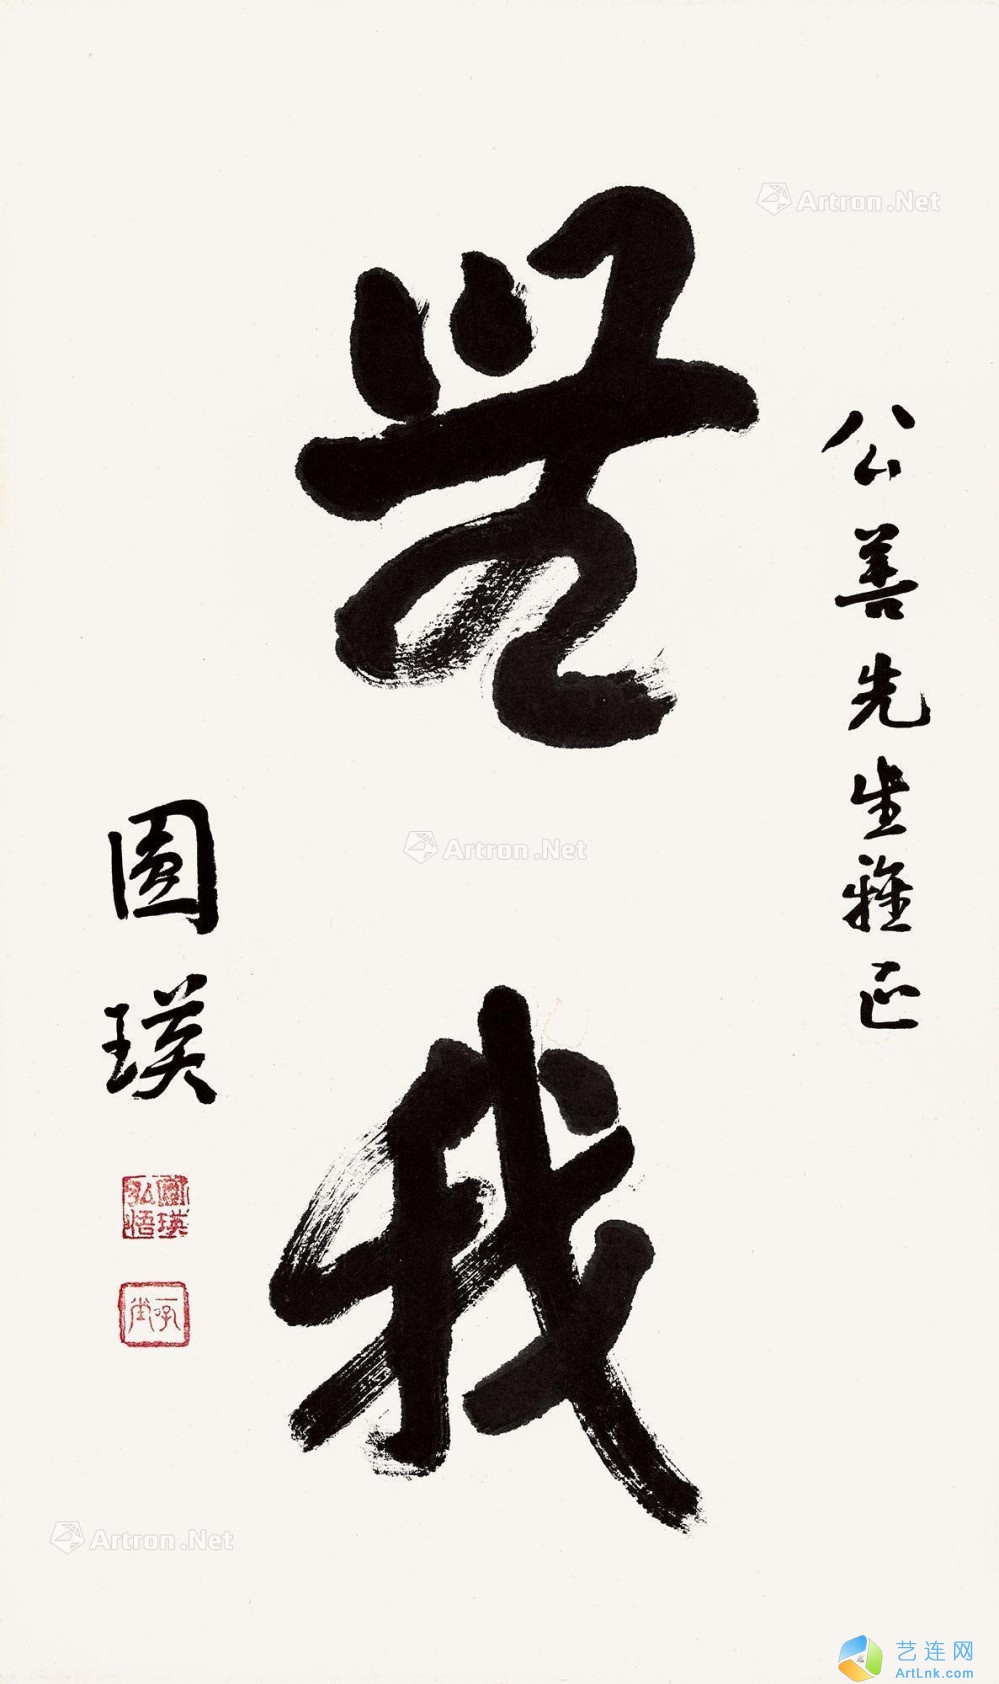 公善先生雅正
無我
圓瑛
圓瑛弘悟
一吼堂
Artron.Net
Artron.Net
Artron.Net
艺连网
ArtLnk.com